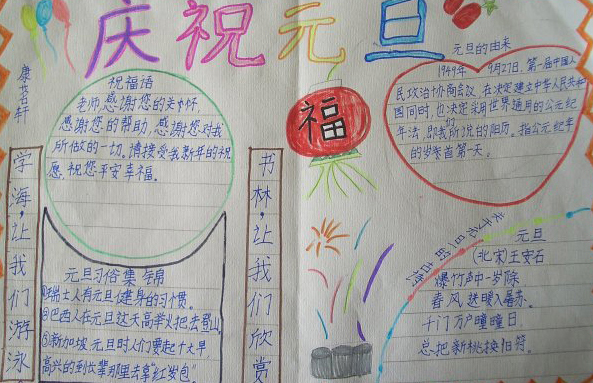 庆祝元旦
康茗轩
祝福语
老师,感谢您的关怀,
感谢您的帮助,感谢您对我
所做的一切。请接受我新年的祝
愿,祝您平安幸福。
学海,让我们游泳
书林,让我们欣赏
元旦习俗集锦
①瑞士人有元旦健身的习惯。
②巴西人在元旦这天高举火把去登山。
③新加坡元旦时人们要起个大早,
高兴的到长辈那里去拿"红岁包"
福
元旦的由来
1949年9月27日,第一届中国人
民政治协商会议,在决定建立中华人民共和
国同时,也决定采用世界通用的公元纪
年法,即我们所说的阳历。指公元纪年
的岁首第一天。
关于元旦的古诗
元旦
(北宋)王安石
爆竹声中一岁除
春风送暖入屠苏。
千门万户曈曈日
总把新桃换旧符。